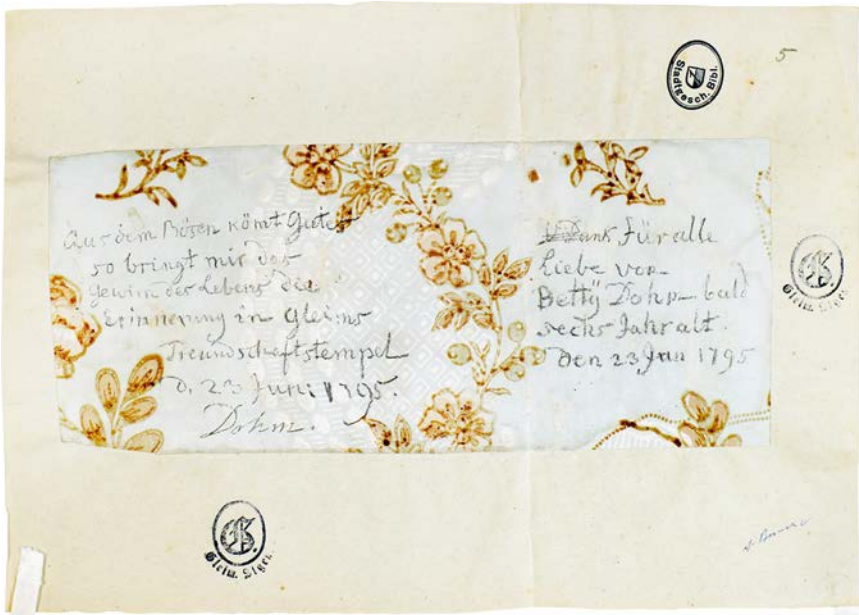 5
Stadtgesch. Bibl.
Aus dem Bösen kömt Gutes
so bringt mir das
Gewirr des Lebens die
Erinnerung in Gleims
Freundschaftstempel
d. 23 Juni 1795.
Dohm.
Dank für alle
Liebe von
Betty Dohm bald
sechs Jahr alt.
den 23 Jun 1795
G.
Gleim. Eigen.
G.
Gleim. Eigen.